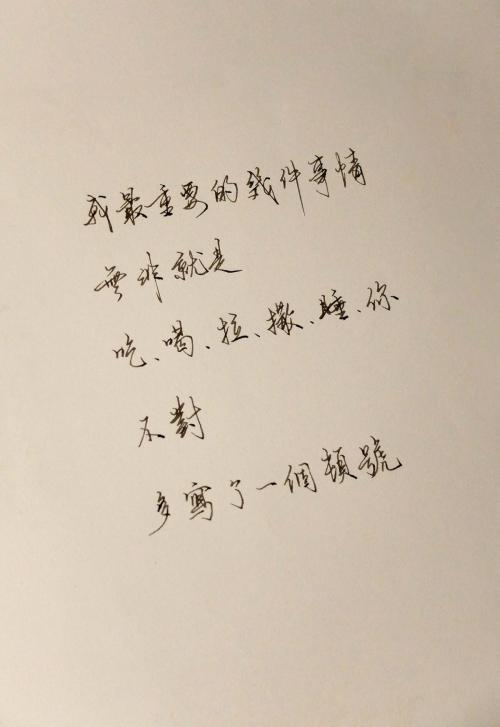 我最重要的幾件事情
無非就是
吃、喝、拉、撒、睡、你
不對
多寫了一個頓號